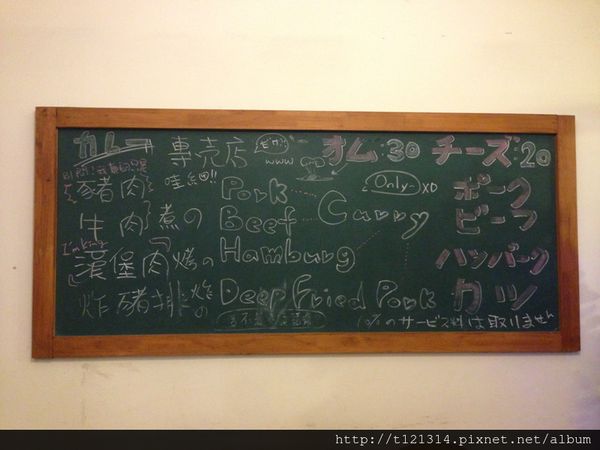 カレー 専売店 www オム:30 チーズ:20
哇細!!
豬肉 Pork Only XD ポーク
牛肉 煮の Beef Curry ビーフ
I'm king
漢堡肉 烤の Hamburg ハンバーク
炸豬排 炸の Deep Fried Pork カツ
10%のサービス料は取りません
http://t121314.pixnet.net/album